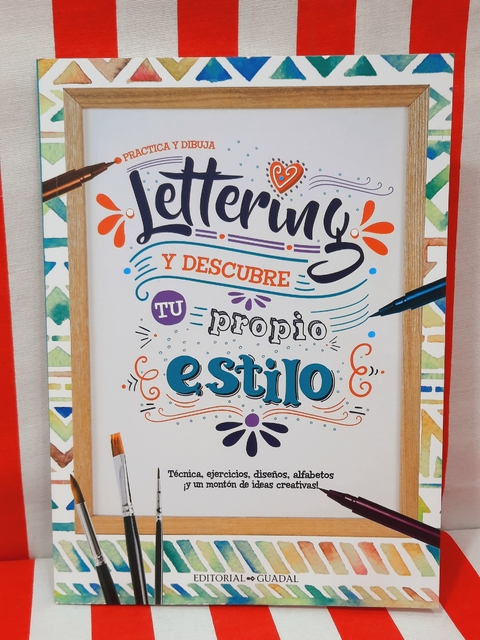 PRACTICA Y DIBUJA
Lettering
Y DESCUBRE
TU propio
estilo
Técnica, ejercicios, diseños, alfabetos
¡y un montón de ideas creativas!
EDITORIAL GUADAL